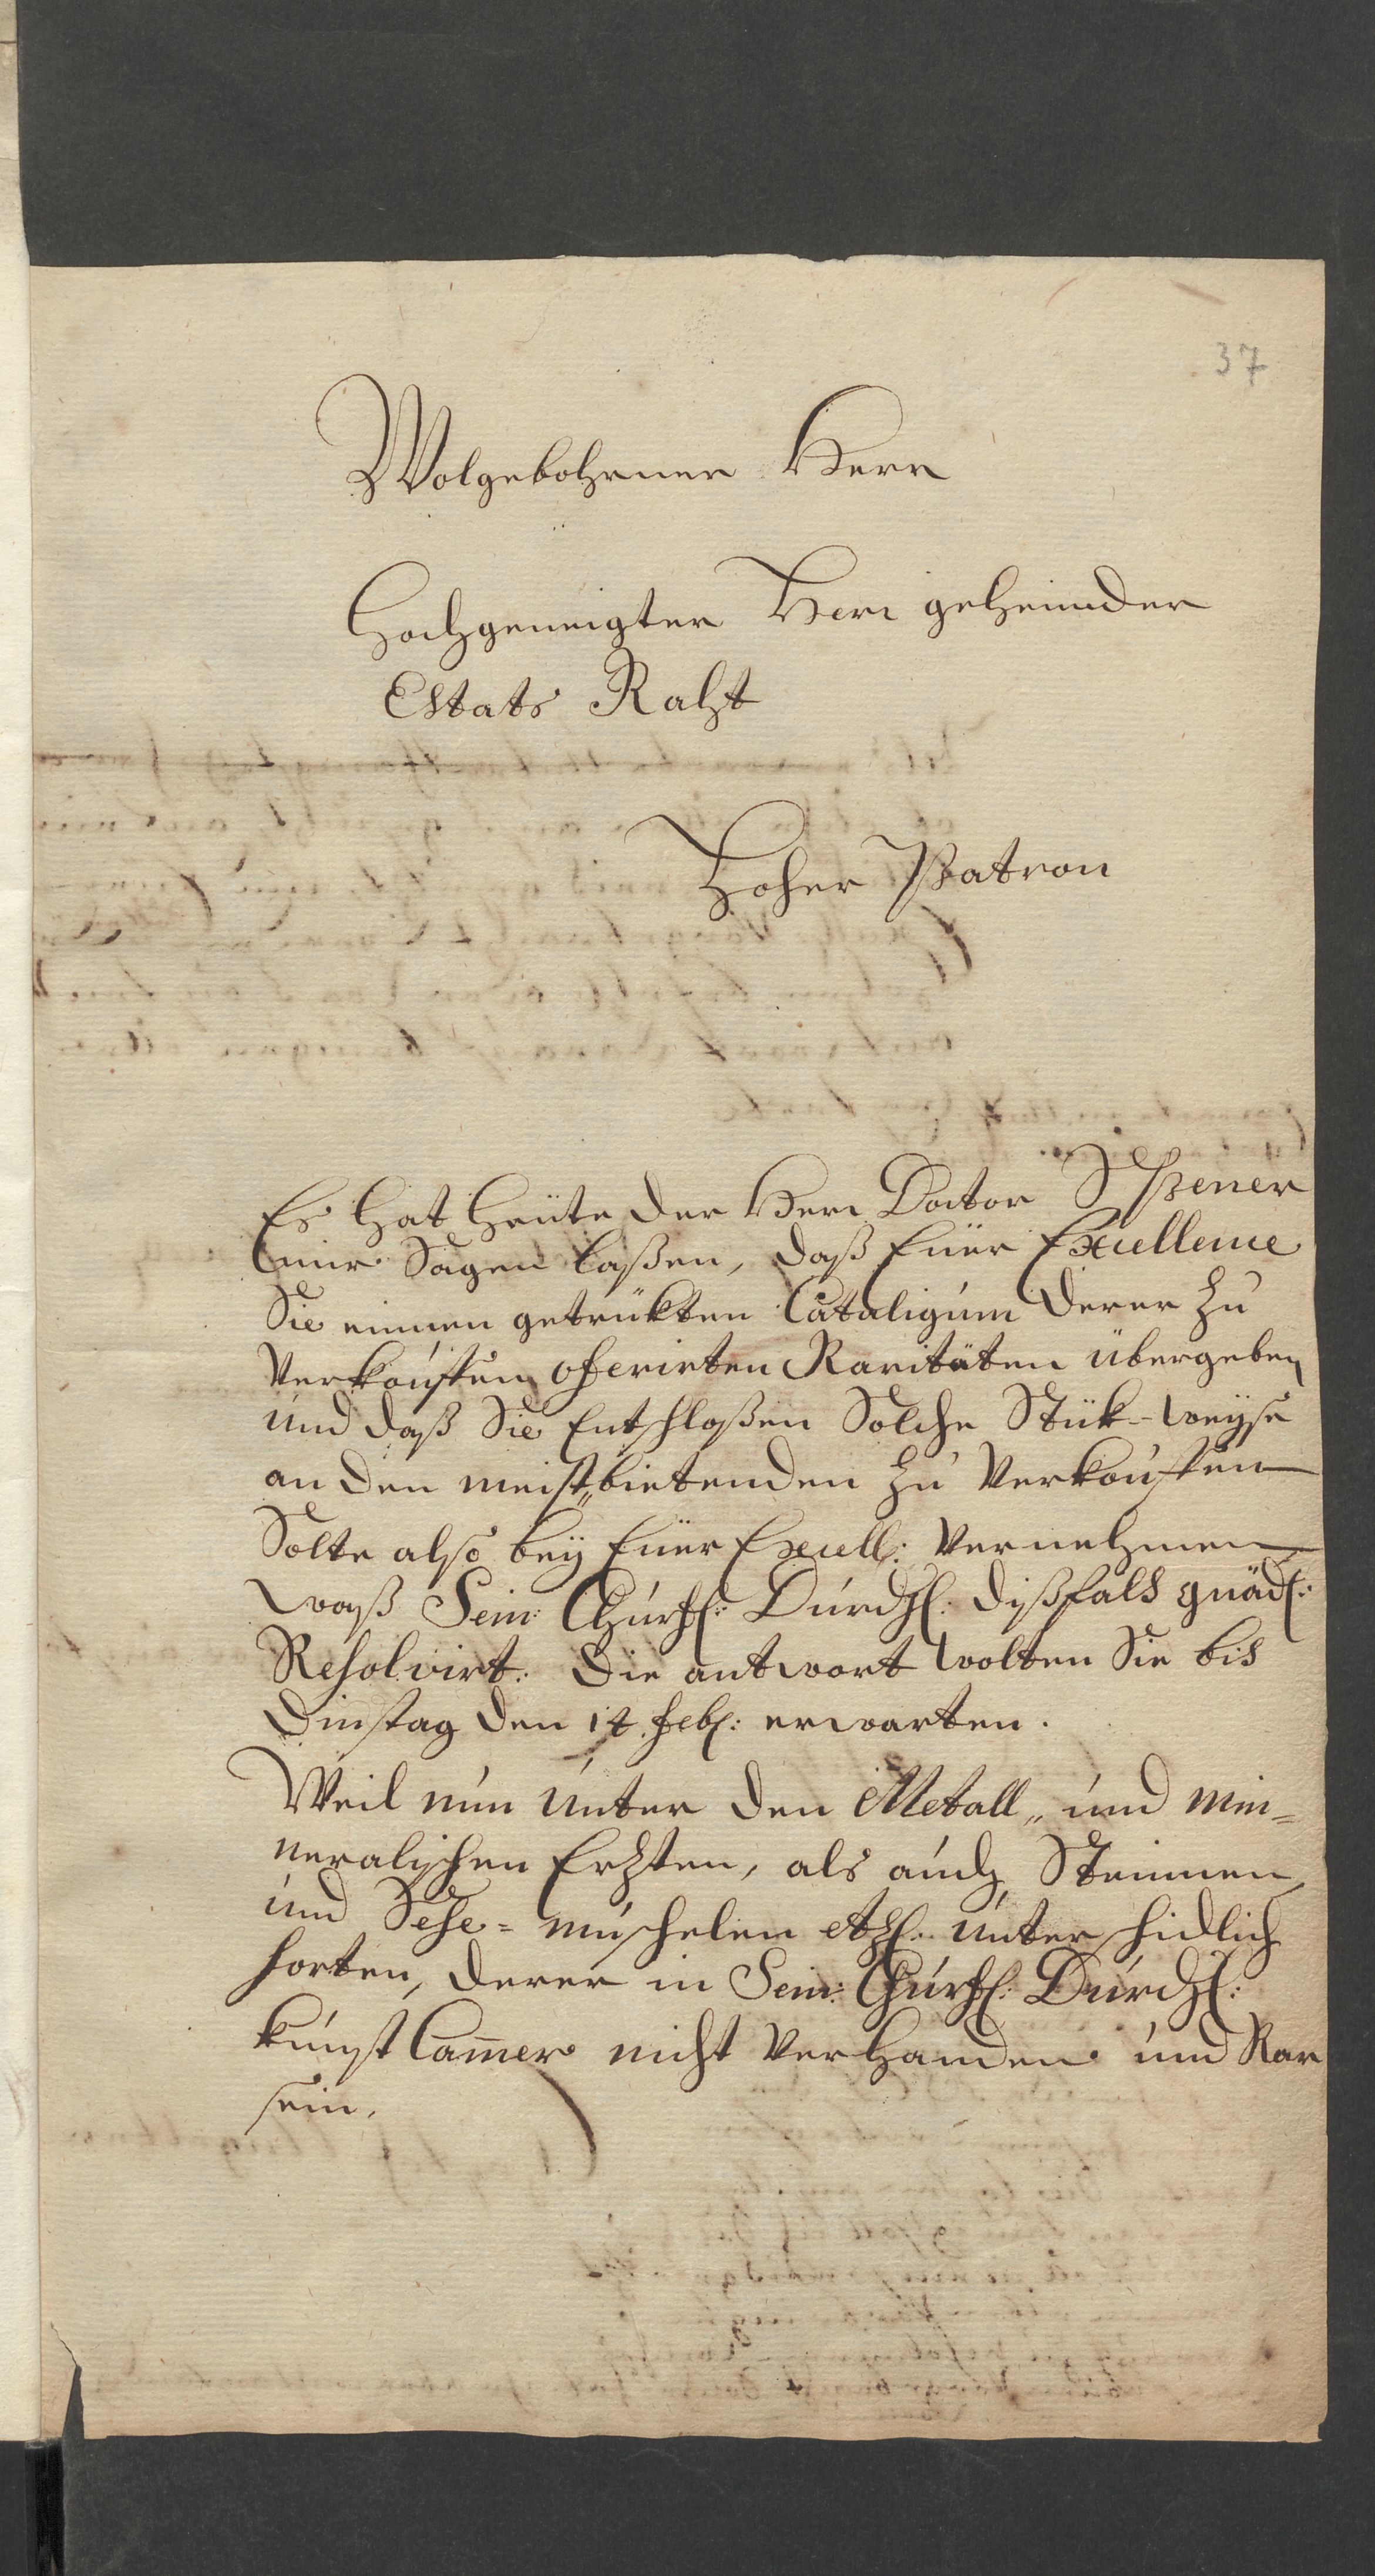 37
Wolgebohrner Herr
Hochgeneigter Herr geheimder
Estats Raht
Hoher Patron
Es hat heüte der Herr Doctor Spener
mir Sagen laßen, daß Euer Excellence
Sie einnen getrükten Cataligum derer zu
Verkauffen oferirten Raritäten übergeben
und daß Sie Entschloßen Solche Stük-weyse
an den meist„bietenden zu Verkauffen
Solte also beÿ Euer Excell: Vernehmen
waß Sein: Churfl: Durchl: dißfals gnäd:
Resolvirt: die antwort wolten Sie bis
Dinstag den 12 febr: erwarten.
Weil nun unter den Metall„ und min=
neralischen Erzten, als auch Steinnen
und Sehe=muschelen etc: unterschidlich
sorten, derer in Sein: Churfl: Durchl:
kunst Cam̅er nicht Verhanden und Rar
sein,